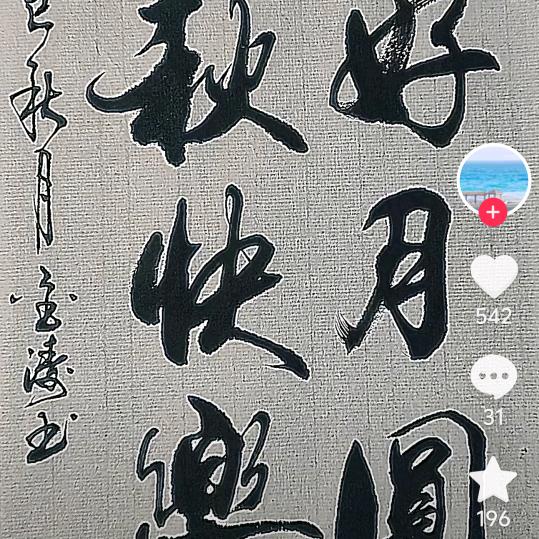 好月圓
秋快樂
巳秋月金濤书
542
31
196